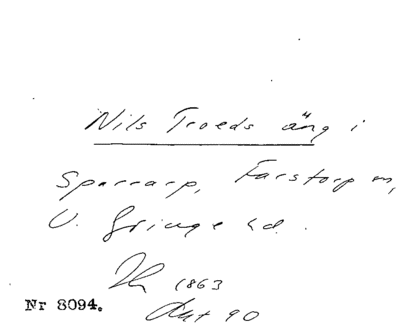 Nils Troeds äng i
Sparrarp, Farstorp sn,
V. Göinge hd.
1863
Akt 90
Nr 8094.